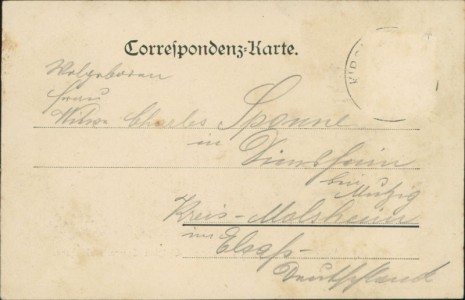 Correspondenz-Karte.
Wolgeboren
Frau
Witwe Charles Sponne
in
Dinsheim
bei Mutzig
Kreis-Molsheim
im Elsaß-
Deutschland